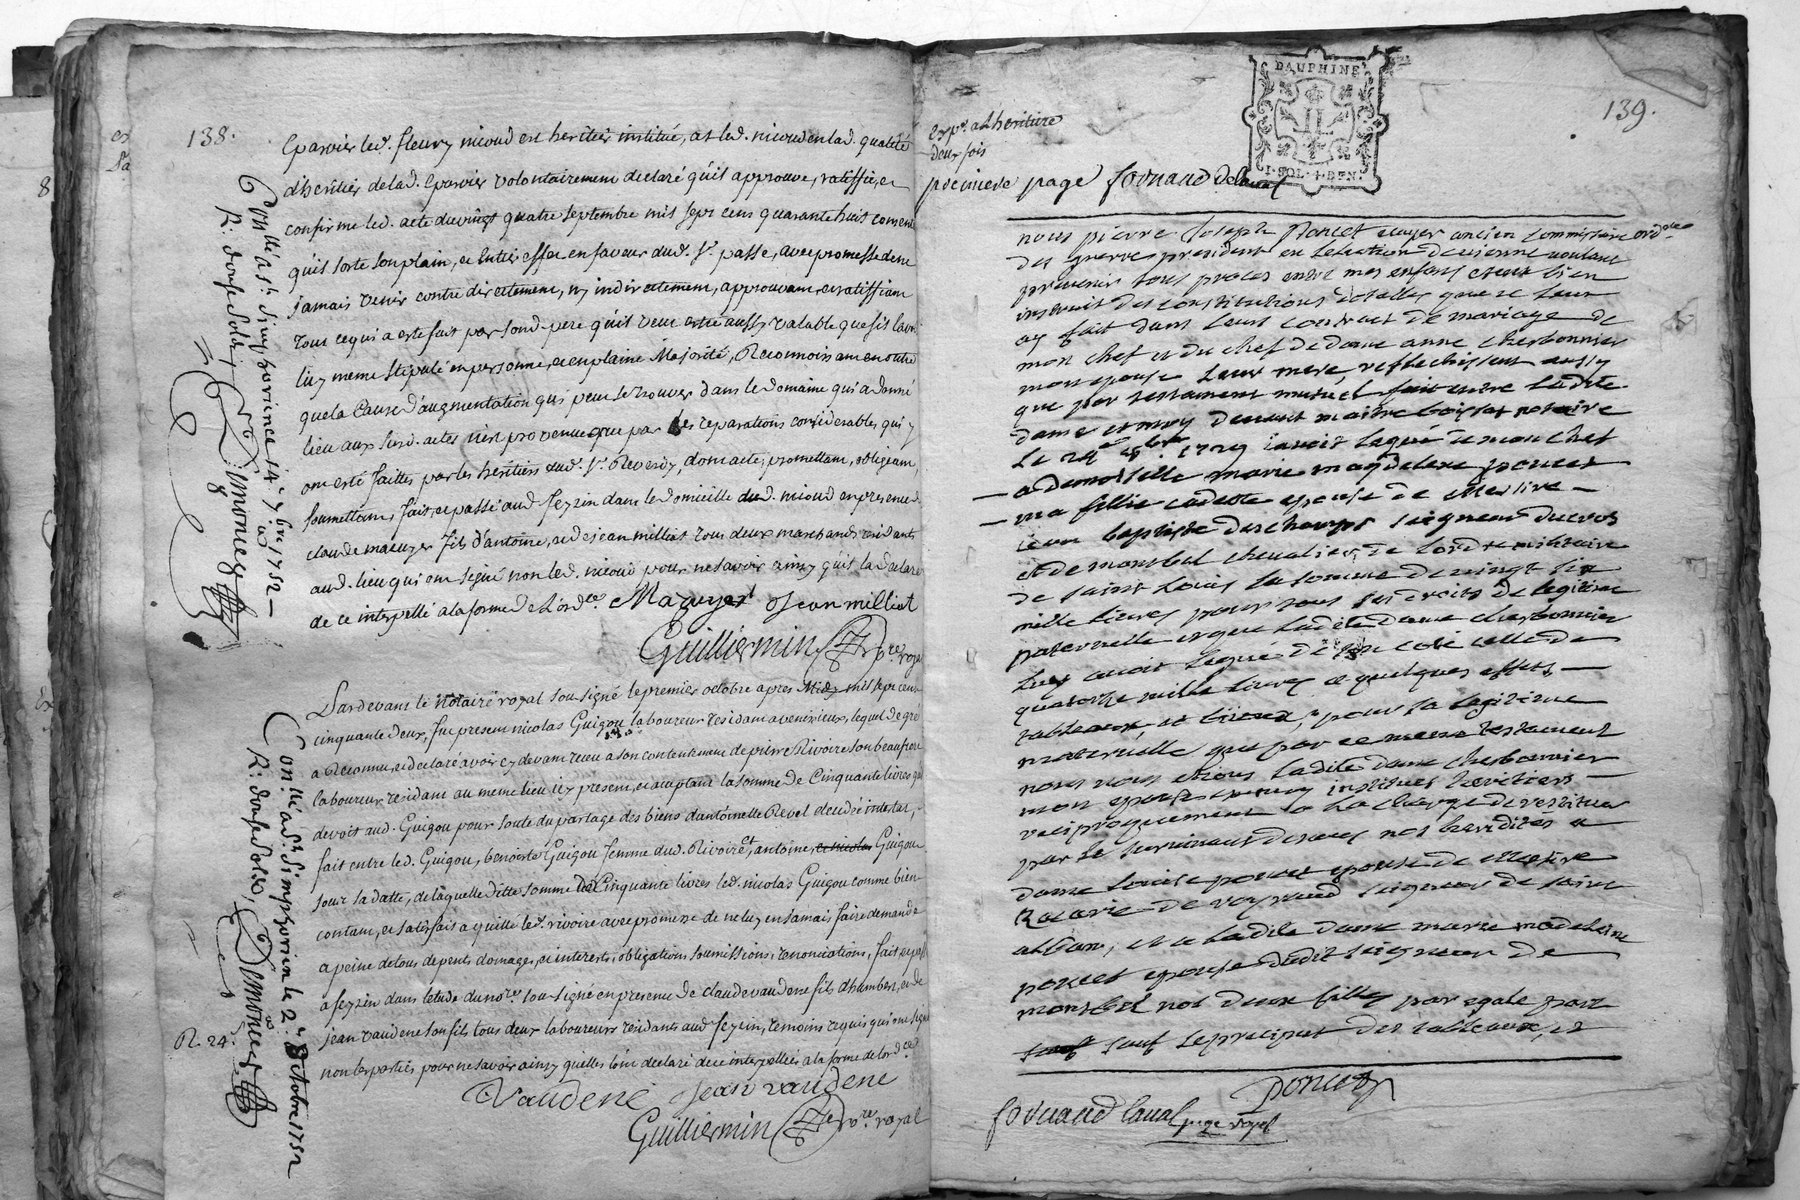 138.
Eparvier led. fleury nicoud est heritier institué, at led. nicoud en lad. qualité
d'heritier de lad. Eparvier volontairement declaré qu'il approuve, ratiffie, et
confirme led. acte du vingt quatre septembre mil sept cens quarante huit consent
qu'il sorte son plain, et entier effet en faveur dud. Sr. passe, avec promesse de ne
jamais venir contre directement, ny indirectement, approuvant et ratiffiant
tout ce qui a esté fait par sond. pere qu'il veut estre aussy valable que s'il l'avoit
luy meme stipulé en personne, et en plaine Majorité, Reconnoissant en outre
que la Cause d'augmentation qui peut se trouver dans le domaine qui a donné
lieu aux susd. actes n'est provenue que par les reparations considerables qui y
ont esté faittes par les heritiers dud. Sr. Reverdy, dont acte, promettant, obligeant,
soumettant, fait, et passé aud. feyzin dans le domicille dud. nicoud en presence de
claude mazuyer fils d'antoine, et de jean milliat tous deux marchands residants
aud. lieu qui ont signé non led. nicoud pour ne savoir ainsy qu'il l'a declaré
de ce interpellé a la forme de L'ordce. Mazuyer Jean milliat
Guilliermin Nre. royal
Conllé a St. Simphorien ce 14e 7bre 1752
R: douse sols
Simonet
Pardevant le notaire royal sousigné le premier octobre apres Midy mil sept cent
cinquante deux, fut present nicolas Guigou laboureur residant a venerieux, lequel de gré
a Reconnu, et declaré avoir cy devant receu a son contentement de pierre Rivoire son beaufrere
laboureur residant au meme lieu icy present, et acceptant la somme de Cinquante livres qu'il
devoit aud. Guigou pour soute du partage des biens d'antoinelle Revol decedée intestat,
fait entre led. Guigou, benoite Guigou femme dud. Rivoire Et antoine, et nicolas Guigou
sous sa datte, de laquelle ditte somme de Cinquante livres led. nicolas Guigou comme bien
content, et satisfait a quitté led. rivoire avec promesse de ne luy en jamais faire demande
a peine de tous depents domages, et interests, obligations soumissions, renonciations, fait, et passé
a feyzin dans l'etude du nore. sousigné en presence de claude vaudene fils d'humbert, et de
jean vaudene son fils tous deux laboureurs residants aud. feyzin, temoins requis qui ont signé
non les parties pour ne savoir ainsy qu'elles l'ont declaré de ce interpellées a la forme de l'ordce.
Vaudene Jean vaudene
Guilliermin Nre. royal
R. 24.
Conllé a St. Simphorien le 2e. octobre 1752
R: douse sols,
Simonet
139.
DAUPHINE
I. SOL. 4 DEN.
deux fois
premiere page fovnaud delaval
nous pierre Joseph Poncet ecuyer ancien Commissaire ordre.
des guerres president en l'election de vienne voulant
prevenir tous proces entre mes enfans et etant bien
instruit des constitutions dotalles que je leur
ay fait dans leurs contract de mariage de
mon chef et du chef de dame anne charbonnier
mon epouse leur mere, reflechissant aussy
que par testament mutuel fait entre ladite
dame et moy devant maitre boissat notaire
le 24e 1729 j'avois legué de mon chef
a demoiselle marie magdelene poncet
ma fille cadette epouse de messire
jean baptiste deschamps seigneur
et de monrbel chevalier, de l'ordre militaire
de saint Louis la somme de vingt six
mille livres pour tous ses droits de legitime
paternelle et que ladite dame charbonnier
luy avoit legué de son coté celle de
quatorse mille livres et quelques effets
tableaux et bijoux, pour sa legitime
maternelle que par ce meme testament
nous nous etions ladite dame charbonnier
mon epouse et moy institues heritiers
reciproquement a la charge de restituer
par le survivant de nous nos heredites a
dame Louise poncet epouse de messire
Zacarie de veynaud seigneur de saint
alban, et a ladite dame marie madeleine
poncet epouse dudit seigneur de
monrbel nos deux filles par egale part
sauf sauf le preciput des tableaux, et
Poncet
fovnaud laval
juge royal